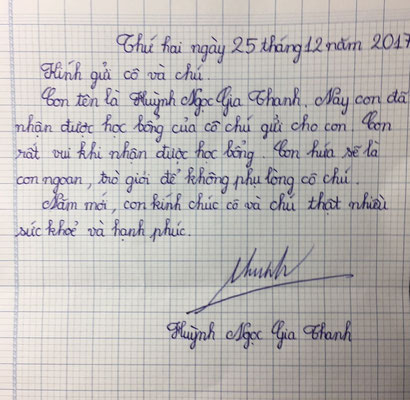 Thứ hai ngày 25 tháng 12 năm 2017
Kính gửi cô và chú.
Con tên là Huỳnh Ngọc Gia Thanh. Nay con đã
nhận được học bổng của cô chú gửi cho con. Con
rất vui khi nhận được học bổng. Con hứa sẽ là
con ngoan, trò giỏi để không phụ lòng cô chú.
Năm mới, con kính chúc cô và chú thật nhiều
sức khoẻ và hạnh phúc.
Huỳnh Ngọc Gia Thanh